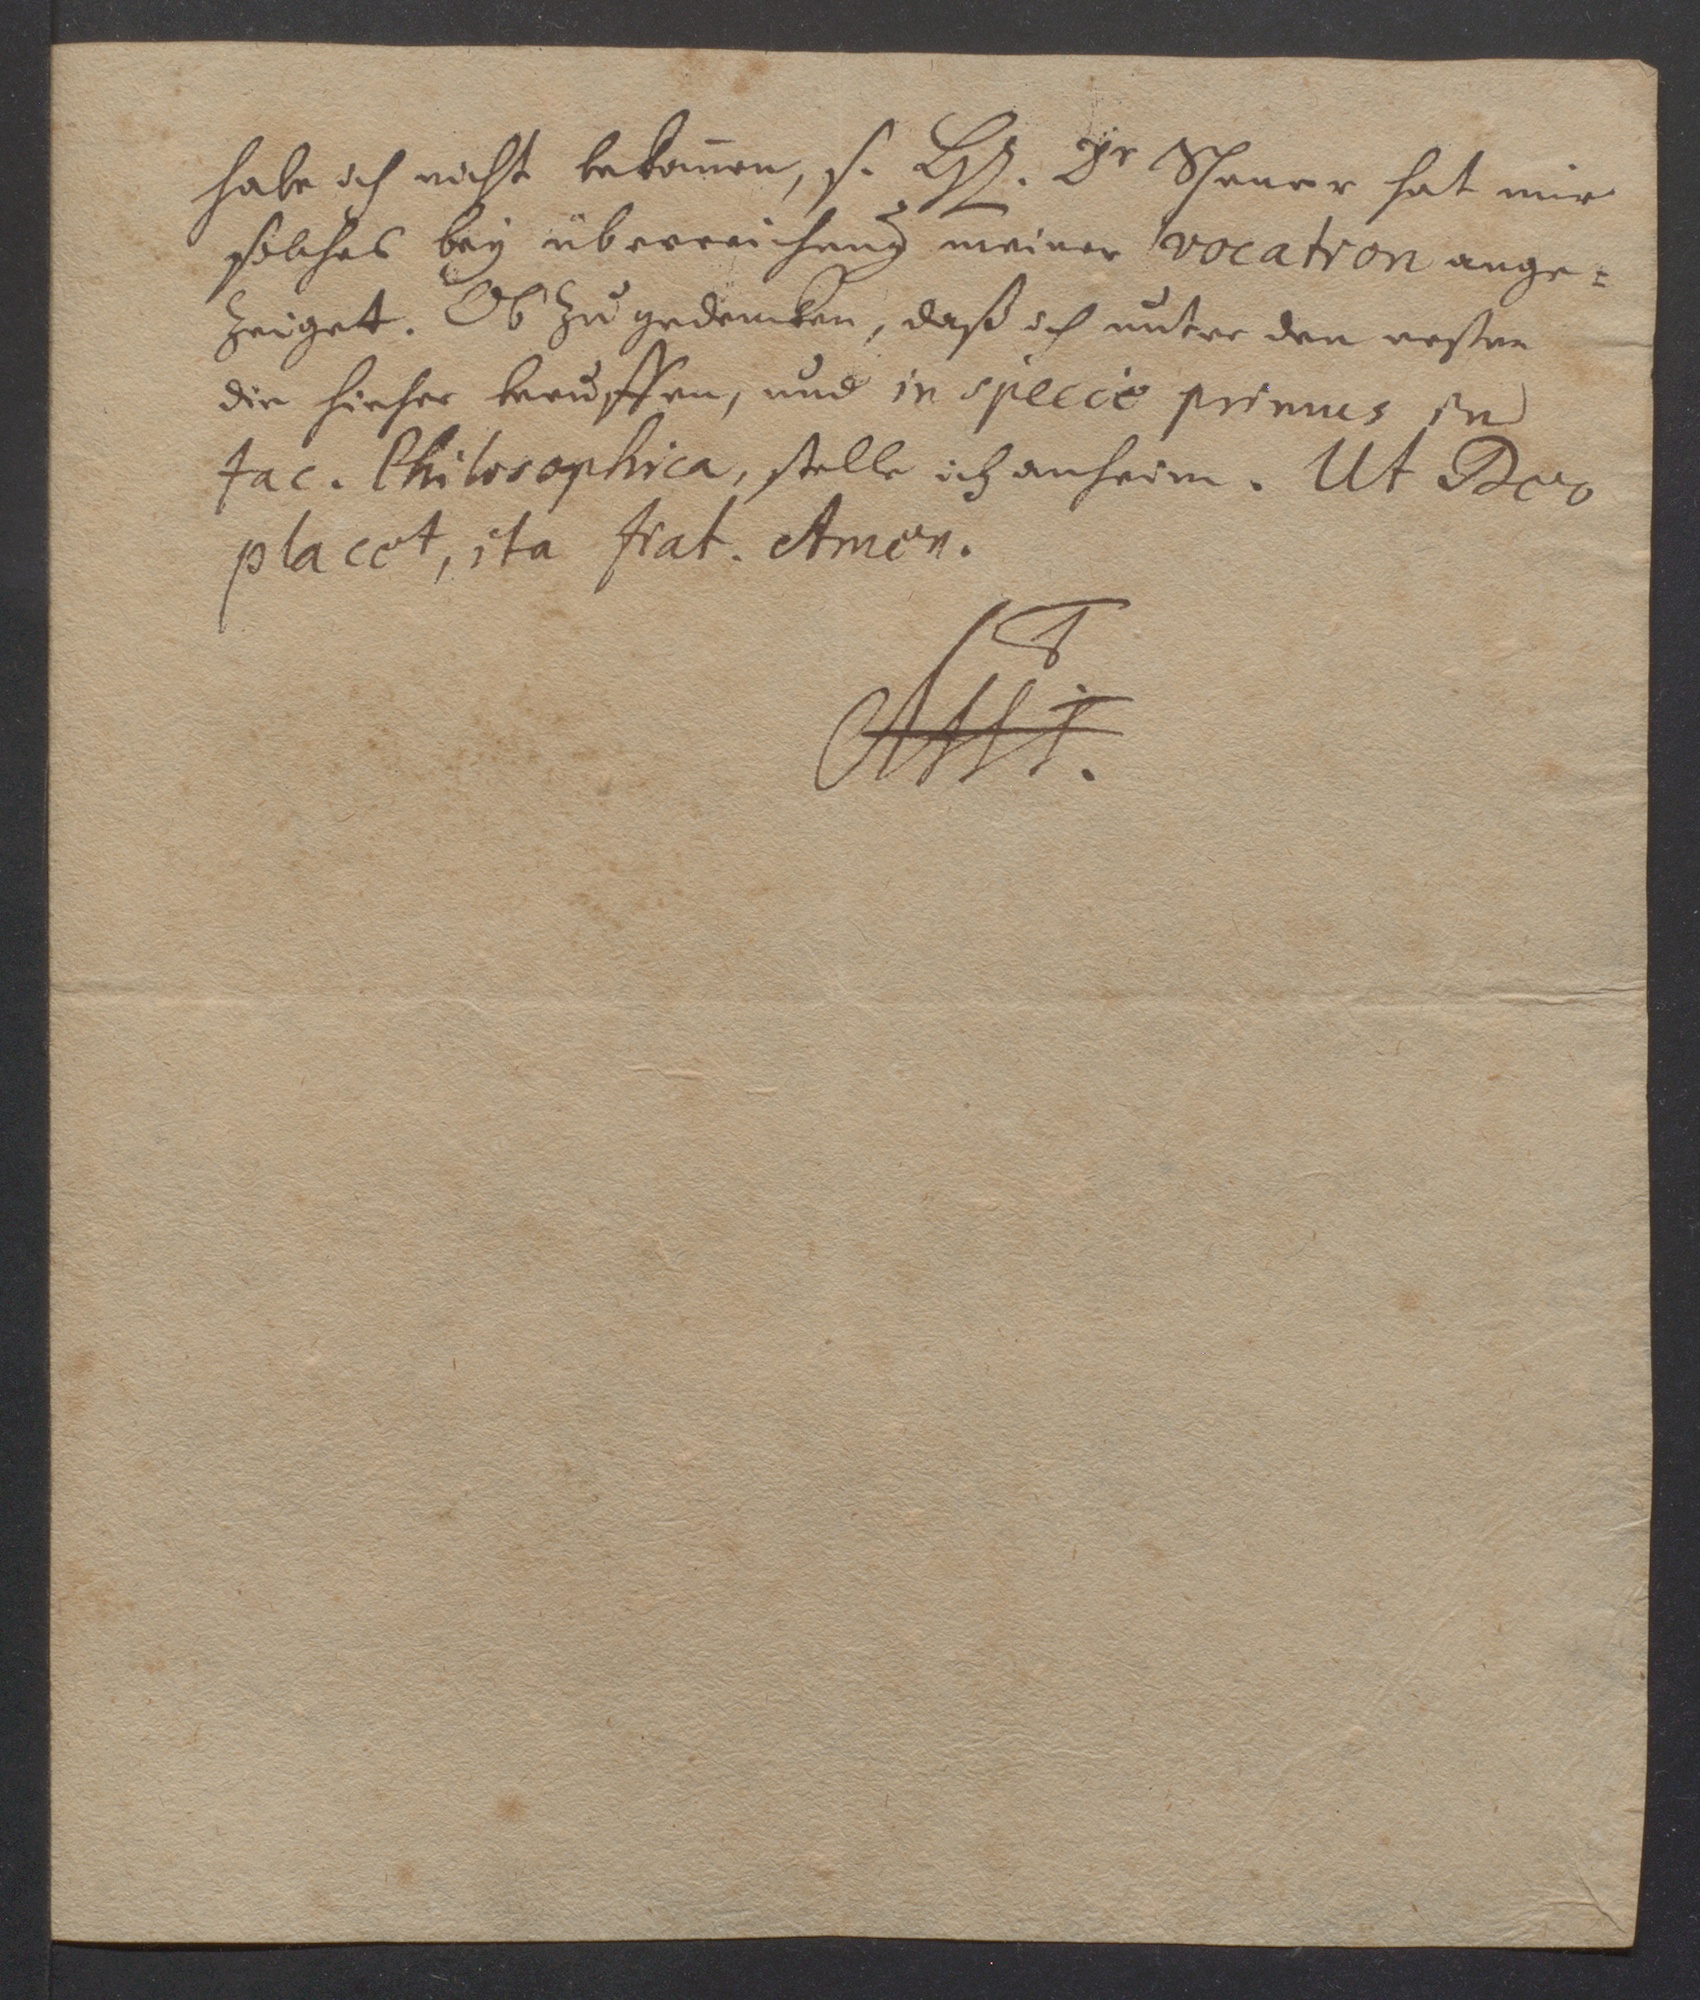 habe ich nicht bekom̅en, s. Dr Schaver hat mir
solches bey überreichung meiner vocation ange=
zeiget. Ob zu gedencken, daß ich unter den ersten
die hieher beruffen, und in specie primus in
fac. Philosophica, stelle ich anheim. Ut Deo
placet, ita fiat. Amen.